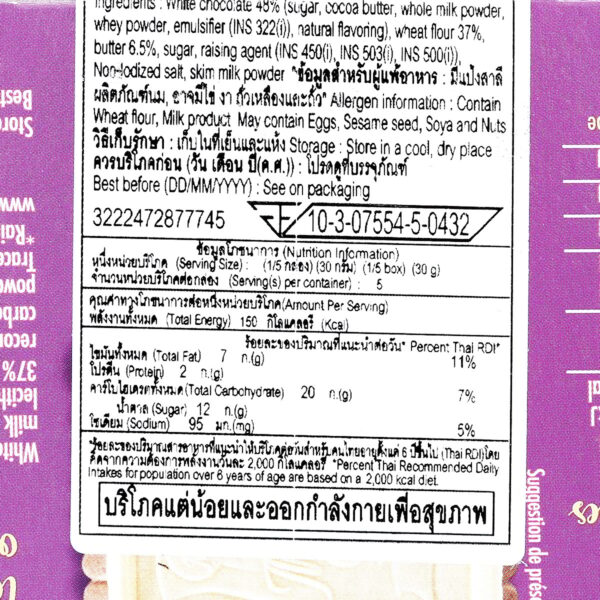 Ingredients : White chocolate 48% (sugar, cocoa butter, whole milk powder,
whey powder, emulsifier (INS 322(i)), natural flavoring), wheat flour 37%,
butter 6.5%, sugar, raising agent (INS 450(i), INS 503(i), INS 500(i)),
Non-Iodized salt, skim milk powder "ข้อมูลสำหรับผู้แพ้อาหาร : มีแป้งสาลี
ผลิตภัณฑ์นม, อาจมีไข่ งา ถั่วเหลืองและถั่ว" Allergen information : Contain
Wheat flour, Milk product May contain Eggs, Sesame seed, Soya and Nuts
วิธีเก็บรักษา : เก็บในที่เย็นและแห้ง Storage : Store in a cool, dry place
ควรบริโภคก่อน (วัน เดือน ปี(ค.ศ.)) : โปรดดูที่บรรจุภัณฑ์
Best before (DD/MM/YYYY) : See on packaging
3222472877745 10-3-07554-5-0432
ข้อมูลโภชนาการ (Nutrition Information)
หนึ่งหน่วยบริโภค (Serving Size) : (1/5 กล่อง) (30 กรัม) (1/5 box) (30 g)
จำนวนหน่วยบริโภคต่อกล่อง (Serving(s) per container) : 5
คุณค่าทางโภชนาการต่อหนึ่งหน่วยบริโภค(Amount Per Serving)
พลังงานทั้งหมด (Total Energy) 150 กิโลแคลอรี (Kcal)
ร้อยละของปริมาณที่แนะนำต่อวัน* Percent Thai RDI*
ไขมันทั้งหมด (Total Fat) 7 ก.(g) 11%
โปรตีน (Protein) 2 ก.(g)
คาร์โบไฮเดรตทั้งหมด(Total Carbohydrate) 20 ก.(g) 7%
น้ำตาล (Sugar) 12 ก.(g)
โซเดียม (Sodium) 95 มก.(mg) 5%
*ร้อยละของปริมาณสารอาหารที่แนะนำให้บริโภคต่อวันสำหรับคนไทยอายุตั้งแต่ 6 ปีขึ้นไป (Thai RDI)โดย
คิดจากความต้องการพลังงานวันละ 2,000 กิโลแคลอรี *Percent Thai Recommended Daily
Intakes for population over 6 years of age are based on a 2,000 kcal diet.
บริโภคแต่น้อยและออกกำลังกายเพื่อสุขภาพ
Suggestion de prés
Whit
milk
lecith
37%
recon
carbo
powe
Trace
*Rai
www
Store
Best